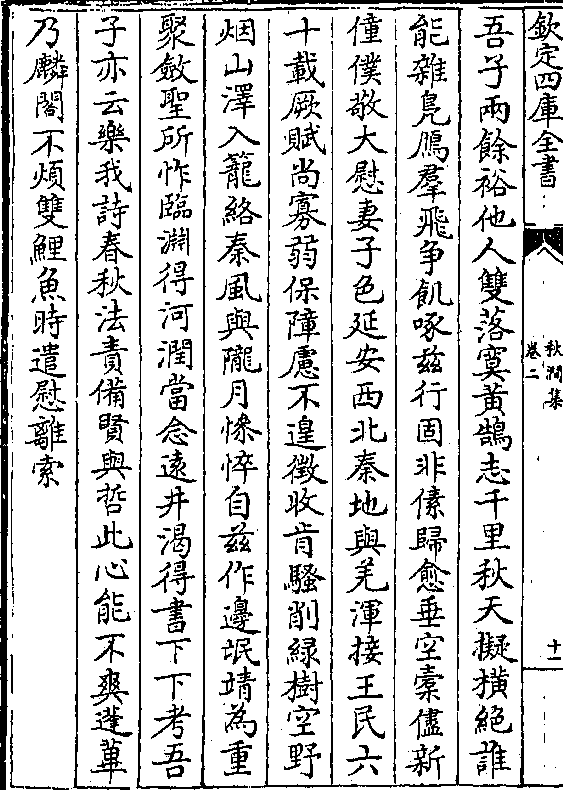 欽定四庫全書
秋澗集
卷二
十一
吾子兩餘裕他人雙落寞黃鵠志千里秋天擬橫絶誰
能雜鳬鴈羣飛爭飢啄兹行固非傃歸愈垂空橐儘新
僮僕敬大慰妻子色延安西北秦地與羌渾接王民六
十載厥賦尚寡弱保障慮不遑徵收肯騷削緑樹空野
烟山澤入籠絡秦風與隴月慘悴自兹作邊氓靖為重
聚斂聖所怍臨淵得河潤當念遠井渴得書下下考吾
子亦云樂我詩春秋法責備賢與哲此心能不爽蓬蓽
乃麟閣不煩雙鯉魚時遣慰離索